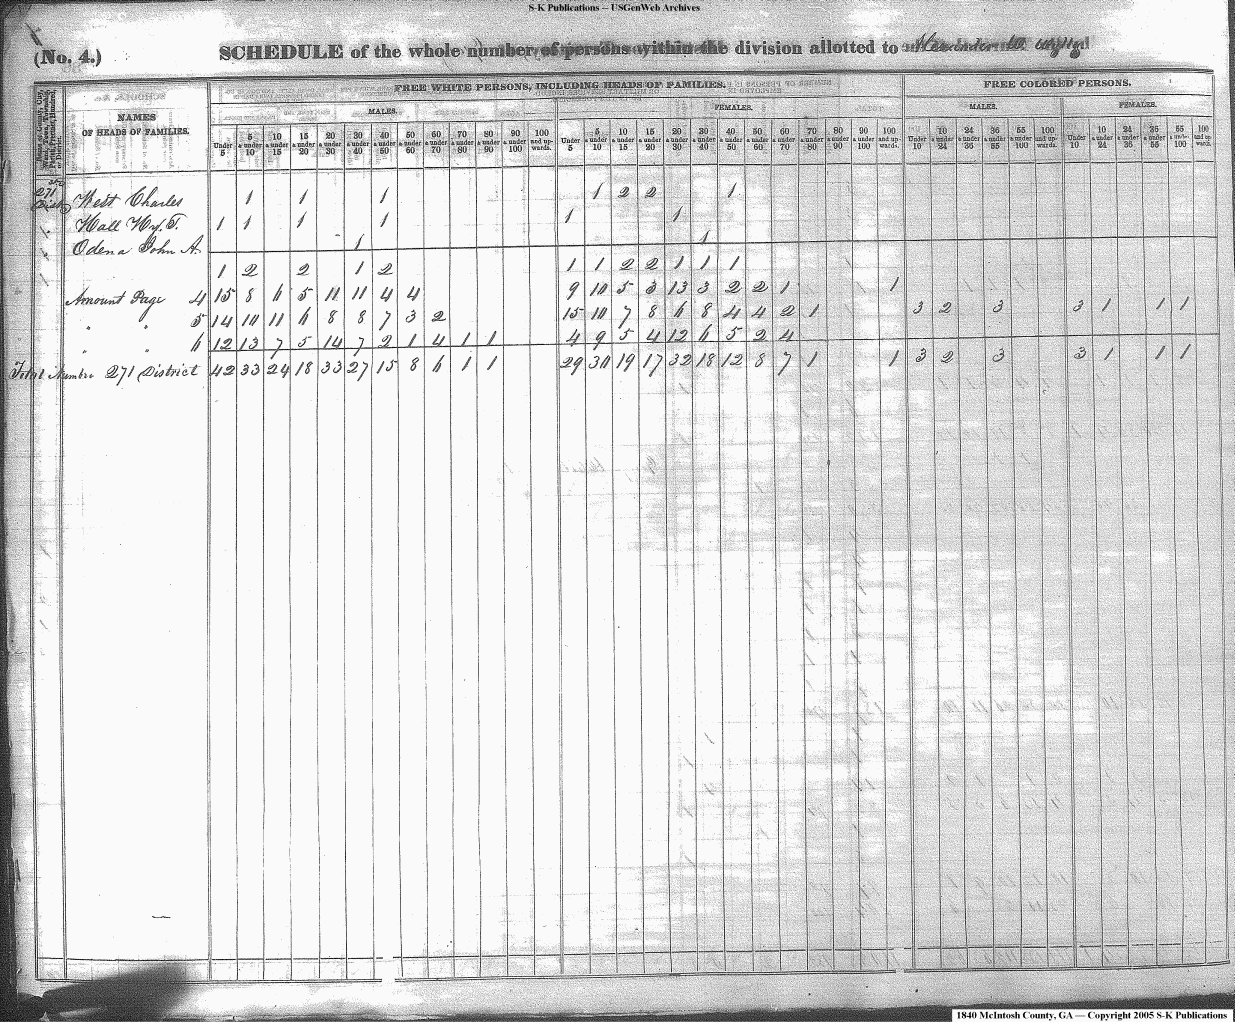 S-K Publications -- USGenWeb Archives
(No. 4.) SCHEDULE of the whole number of persons within the division allotted to Alexander W.
FREE WHITE PERSONS, INCLUDING HEADS OF FAMILIES. FREE COLORED PERSONS.
NAMES OF HEADS OF FAMILIES.
MALES. FEMALES. MALES. FEMALES.
Under 5 | 5 & under 10 | 10 & under 15 | 15 & under 20 | 20 & under 30 | 30 & under 40 | 40 & under 50 | 50 & under 60 | 60 & under 70 | 70 & under 80 | 80 & under 90 | 90 & under 100 | 100 and upwards. | Under 5 | 5 & under 10 | 10 & under 15 | 15 & under 20 | 20 & under 30 | 30 & under 40 | 40 & under 50 | 50 & under 60 | 60 & under 70 | 70 & under 80 | 80 & under 90 | 90 & under 100 | 100 and upwards. | Under 10 | 10 & under 24 | 24 & under 36 | 36 & under 55 | 55 & under 100 | 100 and upwards. | Under 10 | 10 & under 24 | 24 & under 36 | 36 & under 55 | 55 & under 100 | 100 and upwards.
271 Dist West Charles 1 1 1 1 2 2 1
Hall Hy. T. 1 1 1 1 1 1
Odena John A. 1 1
1 2 2 1 2 1 1 2 2 1 1 1
Amount Page 4 15 8 6 5 11 11 4 4 9 10 5 3 13 3 2 2 1 1
" " 5 14 10 11 6 8 8 7 3 2 15 10 7 8 6 8 4 4 2 1 3 2 3 3 1 1 1
" " 6 12 13 7 5 14 7 2 1 4 1 1 4 9 5 4 12 6 5 2 4
Total Number 271 District 42 33 24 18 33 27 15 8 6 1 1 29 30 19 17 32 18 12 8 7 1 1 3 2 3 3 1 1 1
1840 McIntosh County, GA — Copyright 2005 S-K Publications